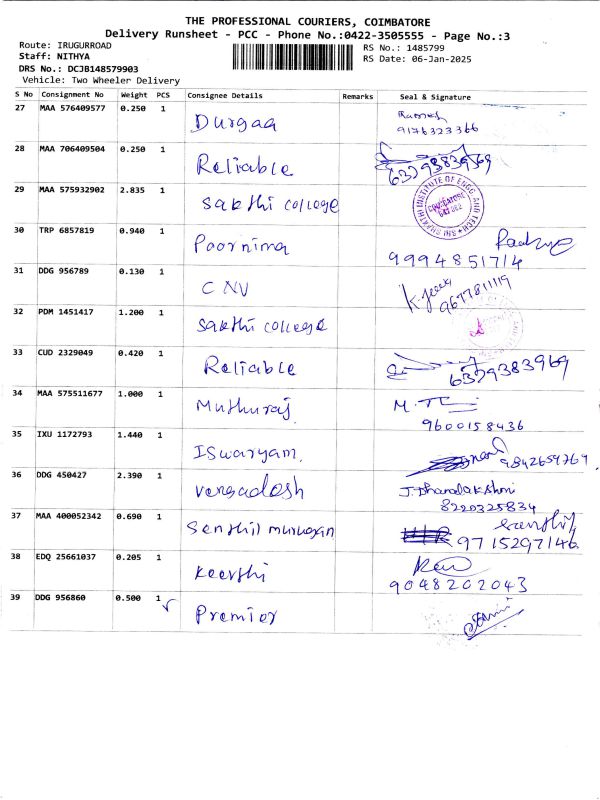 THE PROFESSIONAL COURIERS, COIMBATORE
Delivery Runsheet - PCC - Phone No.:0422-3505555 - Page No.:3
Route: IRUGURROAD
RS No.: 1485799
Staff: NITHYA
RS Date: 06-Jan-2025
DRS No.: DCJB148579903
Vehicle: Two Wheeler Delivery
S No Consignment No Weight PCS Consignee Details Remarks Seal & Signature
27 MAA 576409577 0.250 1 Durgaa Ramesh
9176323366
28 MAA 706409504 0.250 1 Reliable 6379383969
29 MAA 575932902 2.835 1 Sakthi college
30 TRP 6857819 0.940 1 Poornima
9994851714
31 DDG 956789 0.130 1 CNV 9677811119
32 PDM 1451417 1.200 1 Sakthi college
33 CUD 2329049 0.420 1 Reliable 6379383969
34 MAA 575511677 1.000 1 Muthuraj
9600158436
35 IXU 1172793 1.440 1 ISwaryam. 9842659769
36 DDG 450427 2.390 1 Vengadesh J. Dhanalakshmi
8220325834
37 MAA 400052342 0.690 1 Senthil murugan
9715297146
38 EDQ 25661037 0.205 1 Keerthi
9048202043
39 DDG 956860 0.500 1 Premier